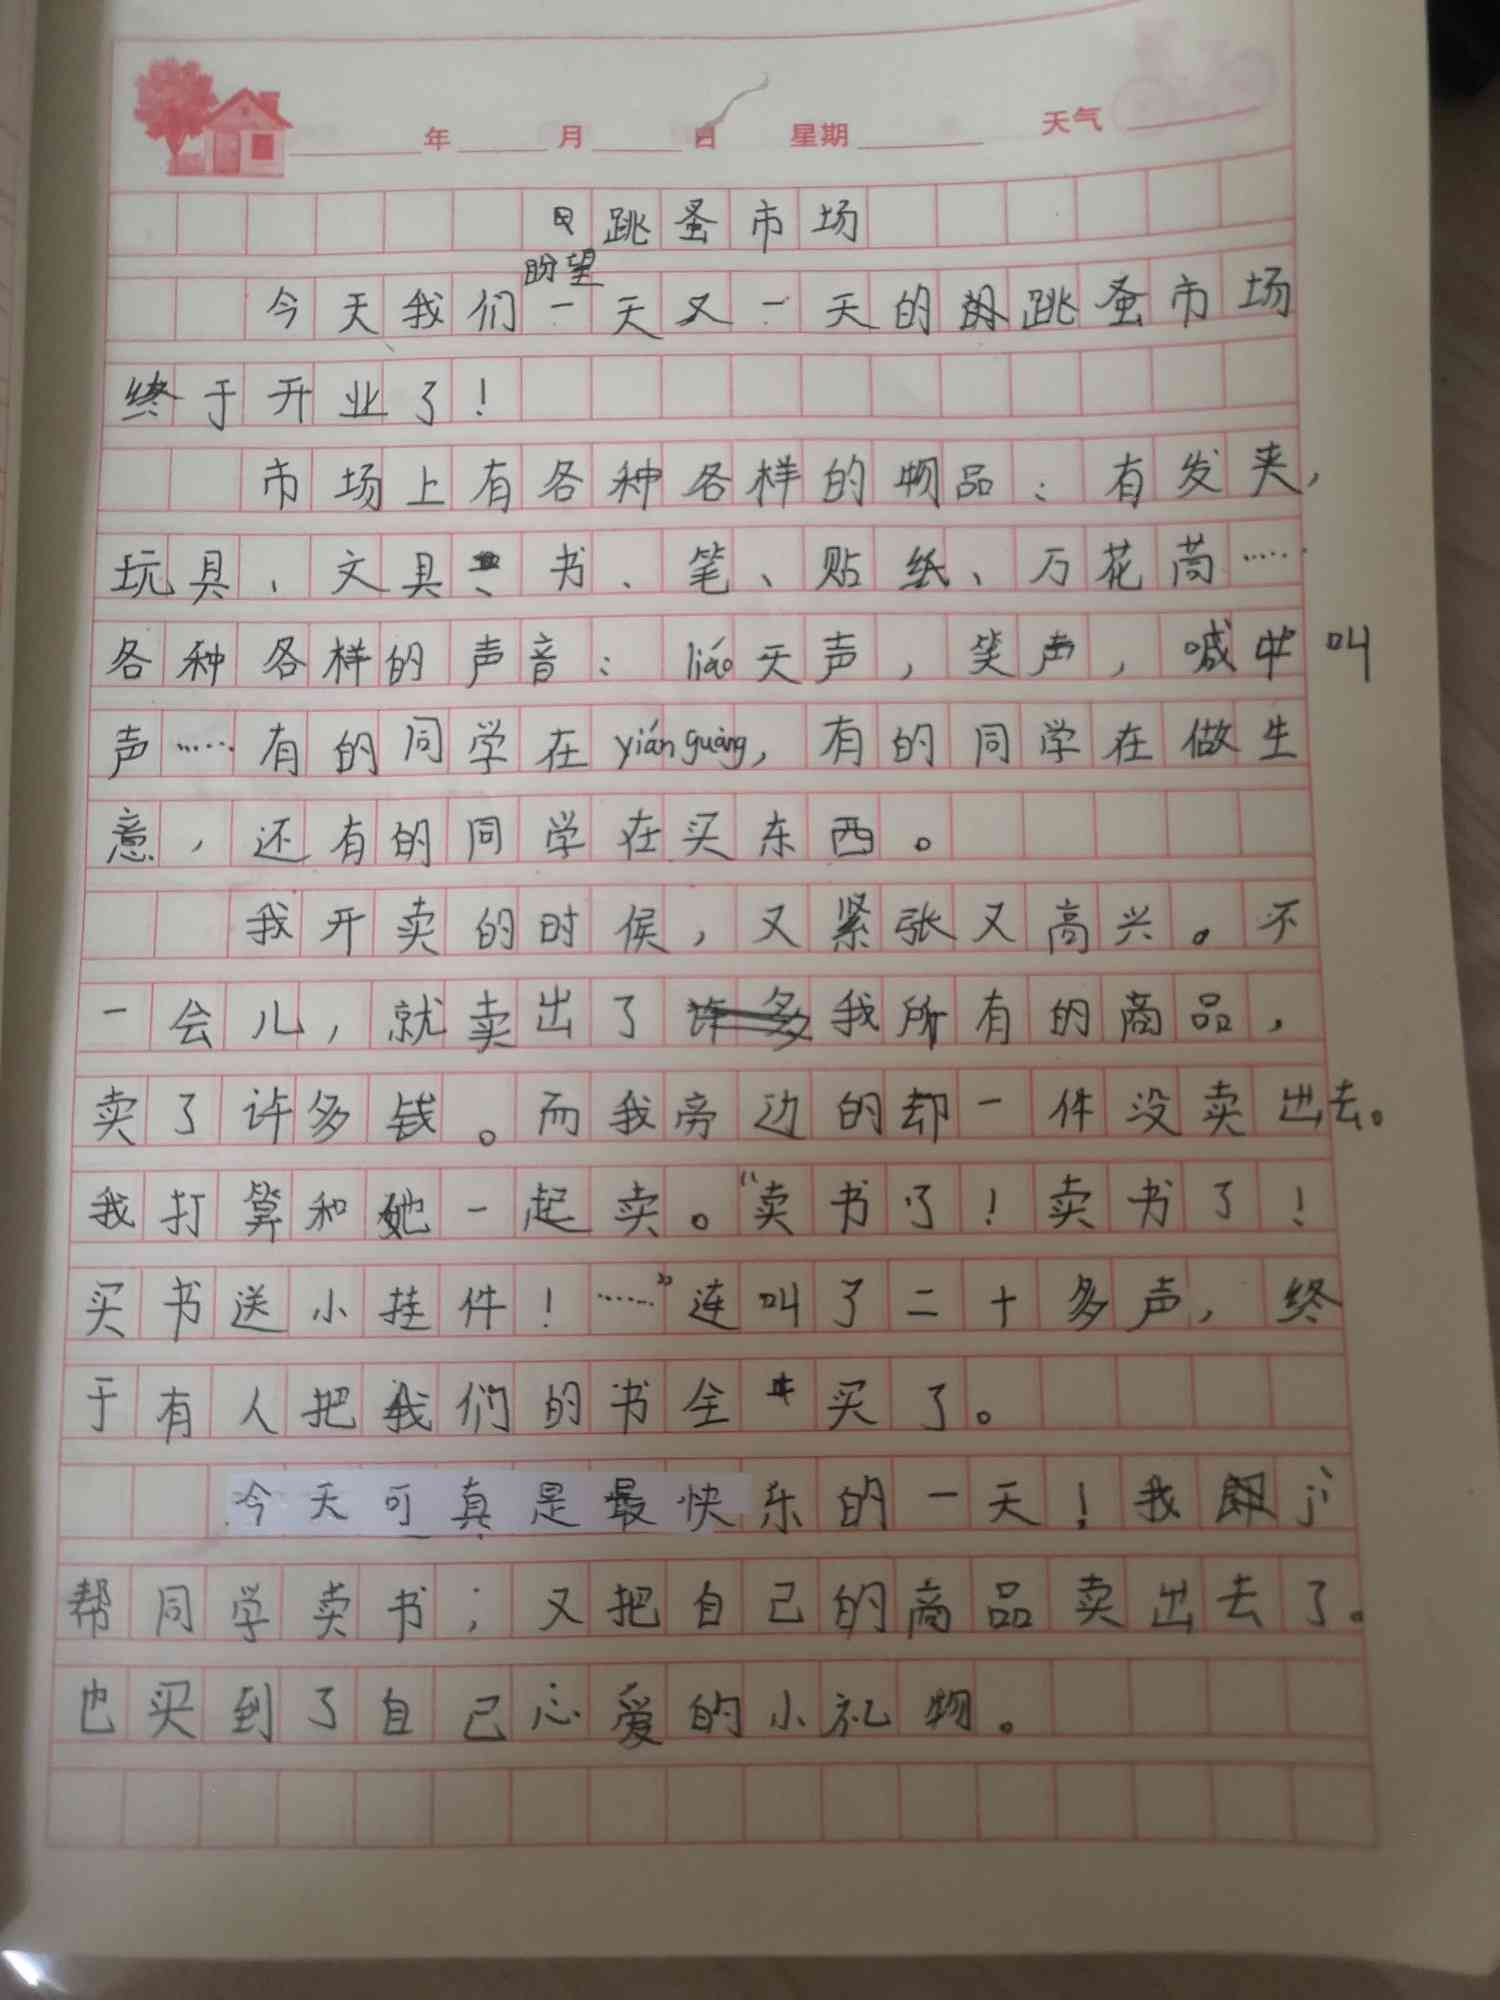 年 月 日 星期 天气
跳蚤市场
盼望
今天我们一天又一天的跳蚤市场
终于开业了！
市场上有各种各样的物品：有发夹，
玩具、文具、书、笔、贴纸、万花茼……
各种各样的声音：liáo天声，笑声，喊叫
声……有的同学在yián guàng，有的同学在做生
意，还有的同学在买东西。
我开卖的时候，又紧张又高兴。不
一会儿，就卖出了许多我所有的商品，
卖了许多钱。而我旁边的却一件没卖出去。
我打算和她一起卖。“卖书了！卖书了！
买书送小挂件！……”连叫了二十多声，终
于有人把我们的书全买了。
今天可真是最快乐的一天！我
帮同学卖书；又把自己的商品卖出去了。
也买到了自己心爱的小礼物。